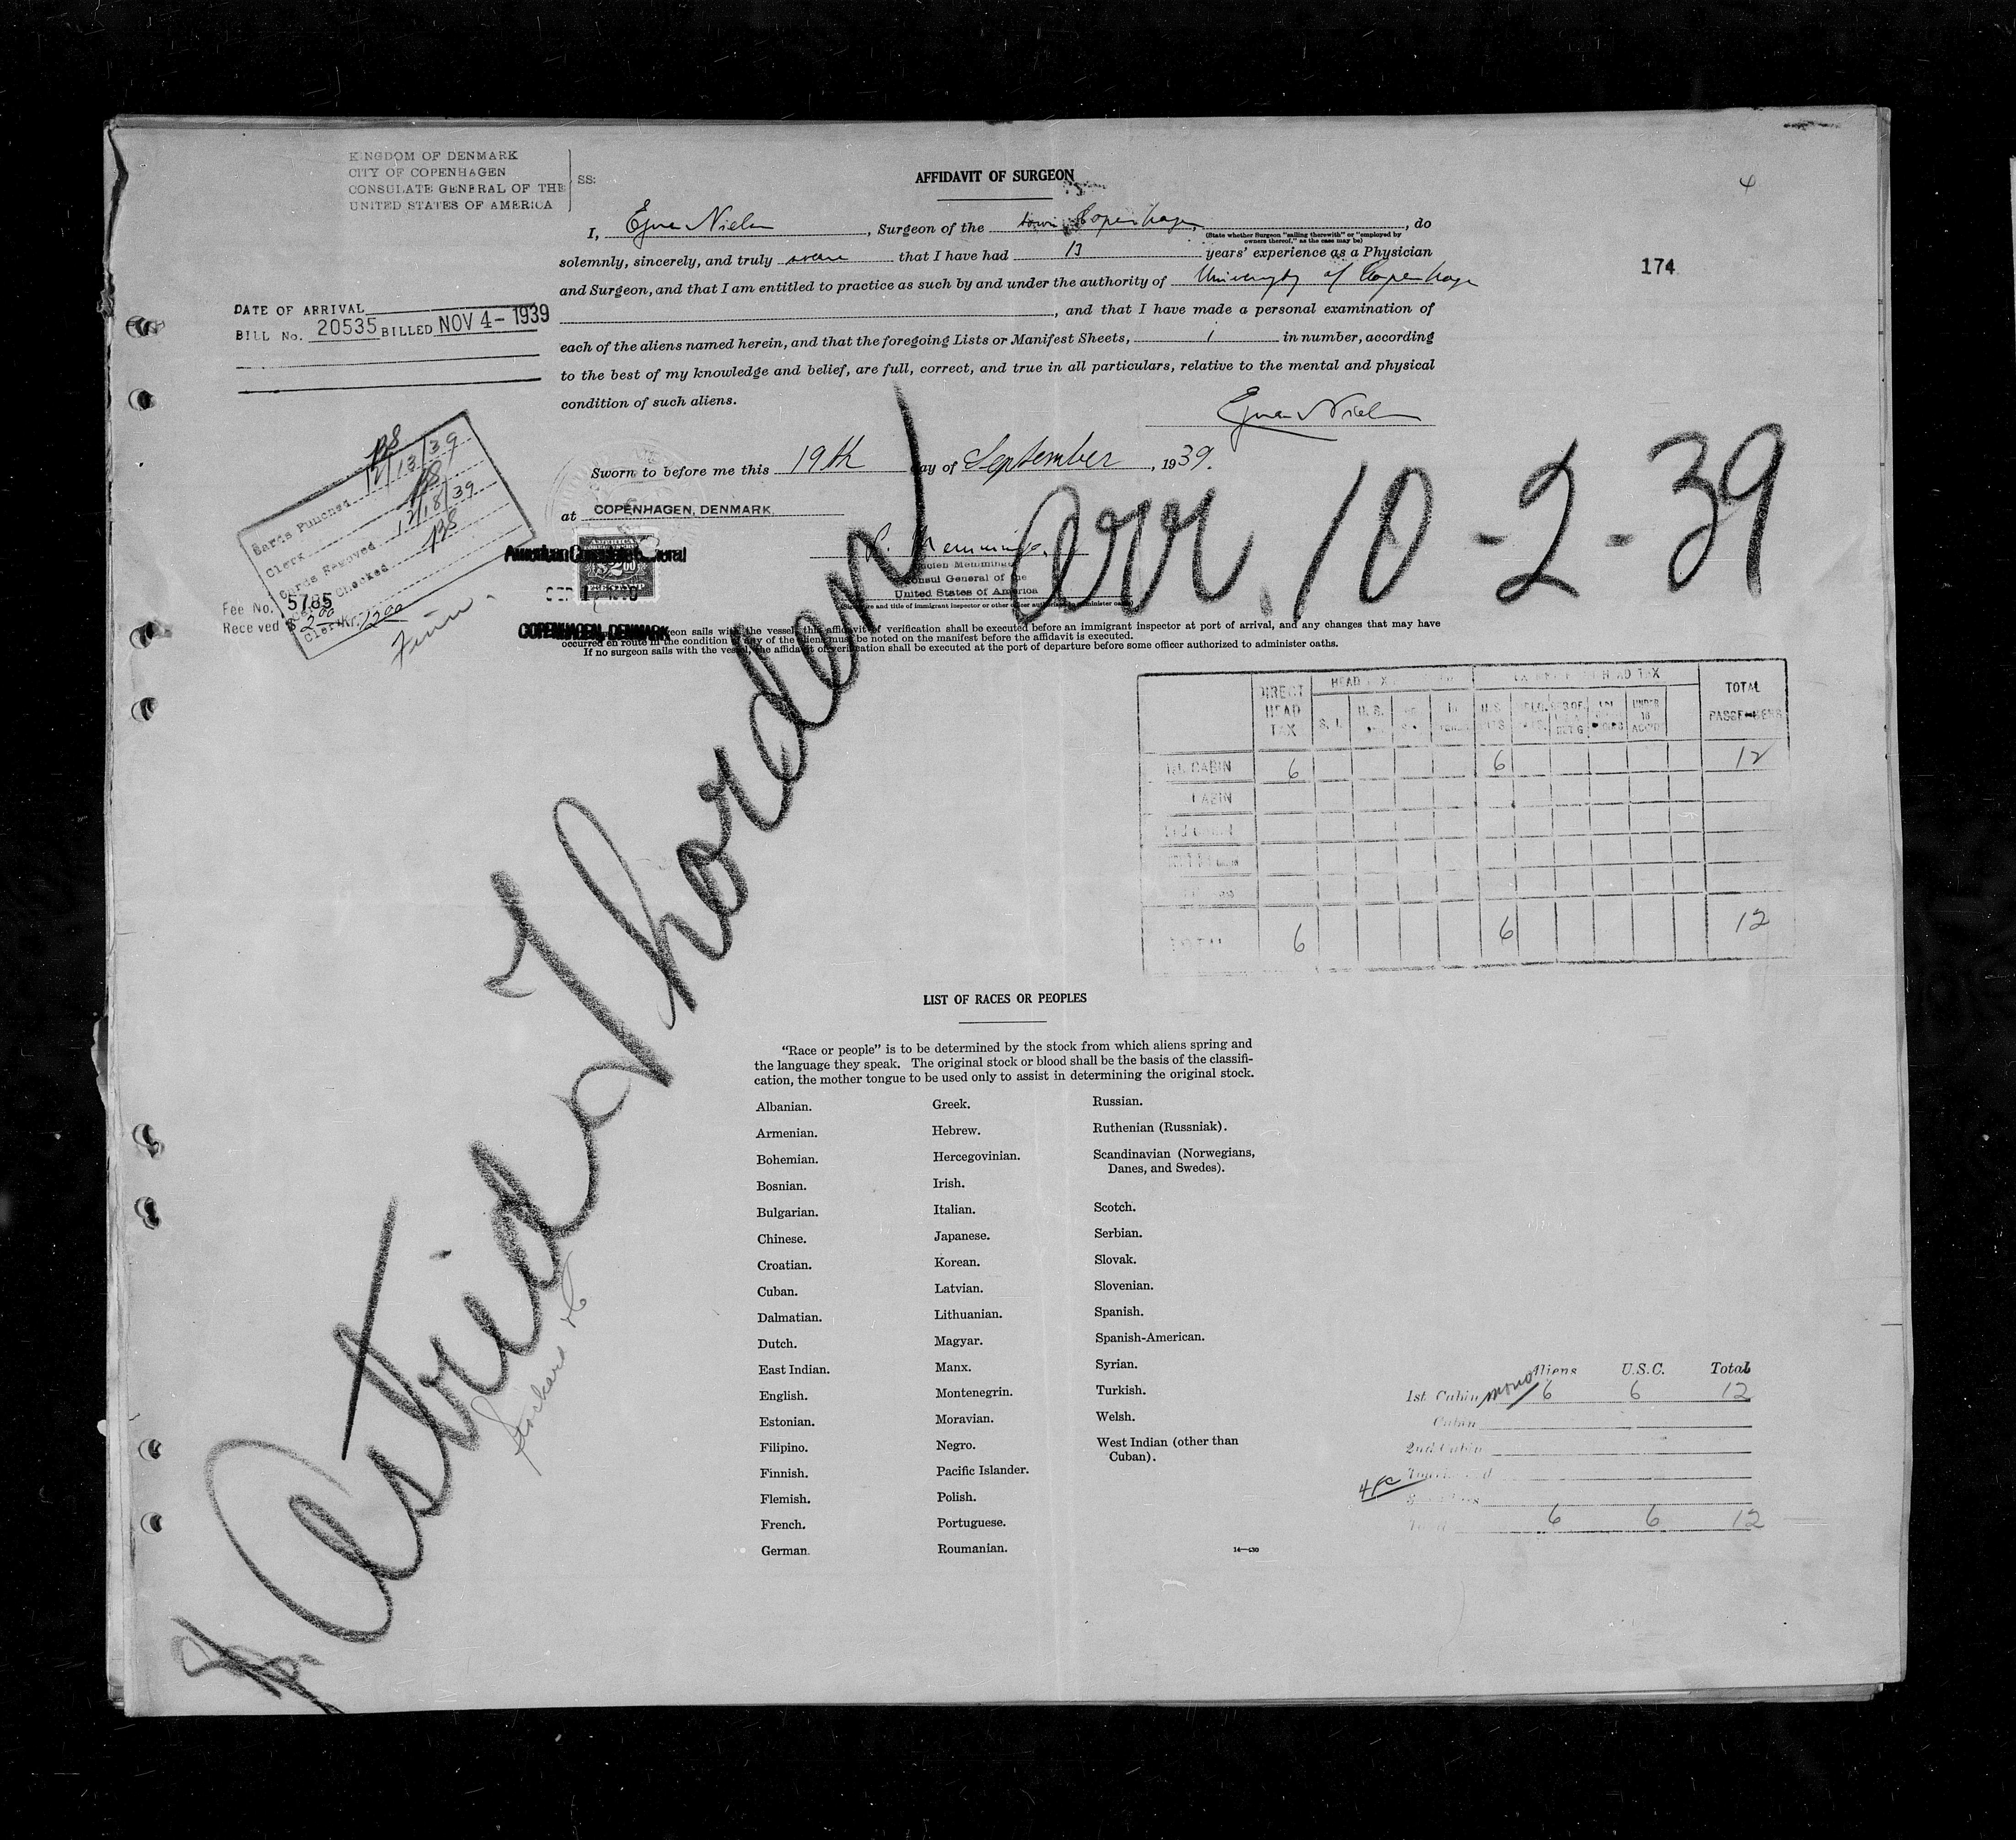 KINGDOM OF DENMARK
CITY OF COPENHAGEN
CONSULATE GENERAL OF THE
UNITED STATES OF AMERICA
SS:
AFFIDAVIT OF SURGEON
4
174
I, , Surgeon of the Copenhagen, do
(State whether Surgeon "sailing therewith" or "employed by
owners thereof," as the case may be)
solemnly, sincerely, and truly swear that I have had 13 years' experience as a Physician
and Surgeon, and that I am entitled to practice as such by and under the authority of University of Copenhagen
, and that I have made a personal examination of
each of the aliens named herein, and that the foregoing Lists or Manifest Sheets, 1 in number, according
to the best of my knowledge and belief, are full, correct, and true in all particulars, relative to the mental and physical
condition of such aliens.
DATE OF ARRIVAL
BILL No. 20535 BILLED NOV 4 - 1939
Sworn to before me this 19th day of September, 1939.
at COPENHAGEN, DENMARK
American Consulate General
AMERICAN
$2.00
Consul General of the
United States of America
COPENHAGEN, DENMARK
Cards Punched 12/13/39
Clerk BS
Cards Removed 12/18/39
Checked BS
Clerk
Fee No. 5785
Received $2.00 Kr. 12.00
Arr. 10-2-39
Astrid Thorden
If a surgeon sails with the vessel, this affidavit of verification shall be executed before an immigrant inspector at port of arrival, and any changes that may have
occurred en route in the condition of any of the aliens must be noted on the manifest before the affidavit is executed.
If no surgeon sails with the vessel, the affidavit of verification shall be executed at the port of departure before some officer authorized to administer oaths.
DIRECT HEAD TAX
HEAD TAX
TOTAL PASSENGERS
1st. CABIN 6 6 12
CABIN
TOTAL 6 6 12
LIST OF RACES OR PEOPLES
"Race or people" is to be determined by the stock from which aliens spring and
the language they speak. The original stock or blood shall be the basis of the classifi-
cation, the mother tongue to be used only to assist in determining the original stock.
Albanian.
Armenian.
Bohemian.
Bosnian.
Bulgarian.
Chinese.
Croatian.
Cuban.
Dalmatian.
Dutch.
East Indian.
English.
Estonian.
Filipino.
Finnish.
Flemish.
French.
German.
Greek.
Hebrew.
Hercegovinian.
Irish.
Italian.
Japanese.
Korean.
Latvian.
Lithuanian.
Magyar.
Manx.
Montenegrin.
Moravian.
Negro.
Pacific Islander.
Polish.
Portuguese.
Roumanian.
Russian.
Ruthenian (Russniak).
Scandinavian (Norwegians,
Danes, and Swedes).
Scotch.
Serbian.
Slovak.
Slovenian.
Spanish.
Spanish-American.
Syrian.
Turkish.
Welsh.
West Indian (other than
Cuban).
14—430
Aliens U.S.C. Total
1st. Cabin mono 6 6 12
Cabin
2nd Cabin
Total 6 6 12